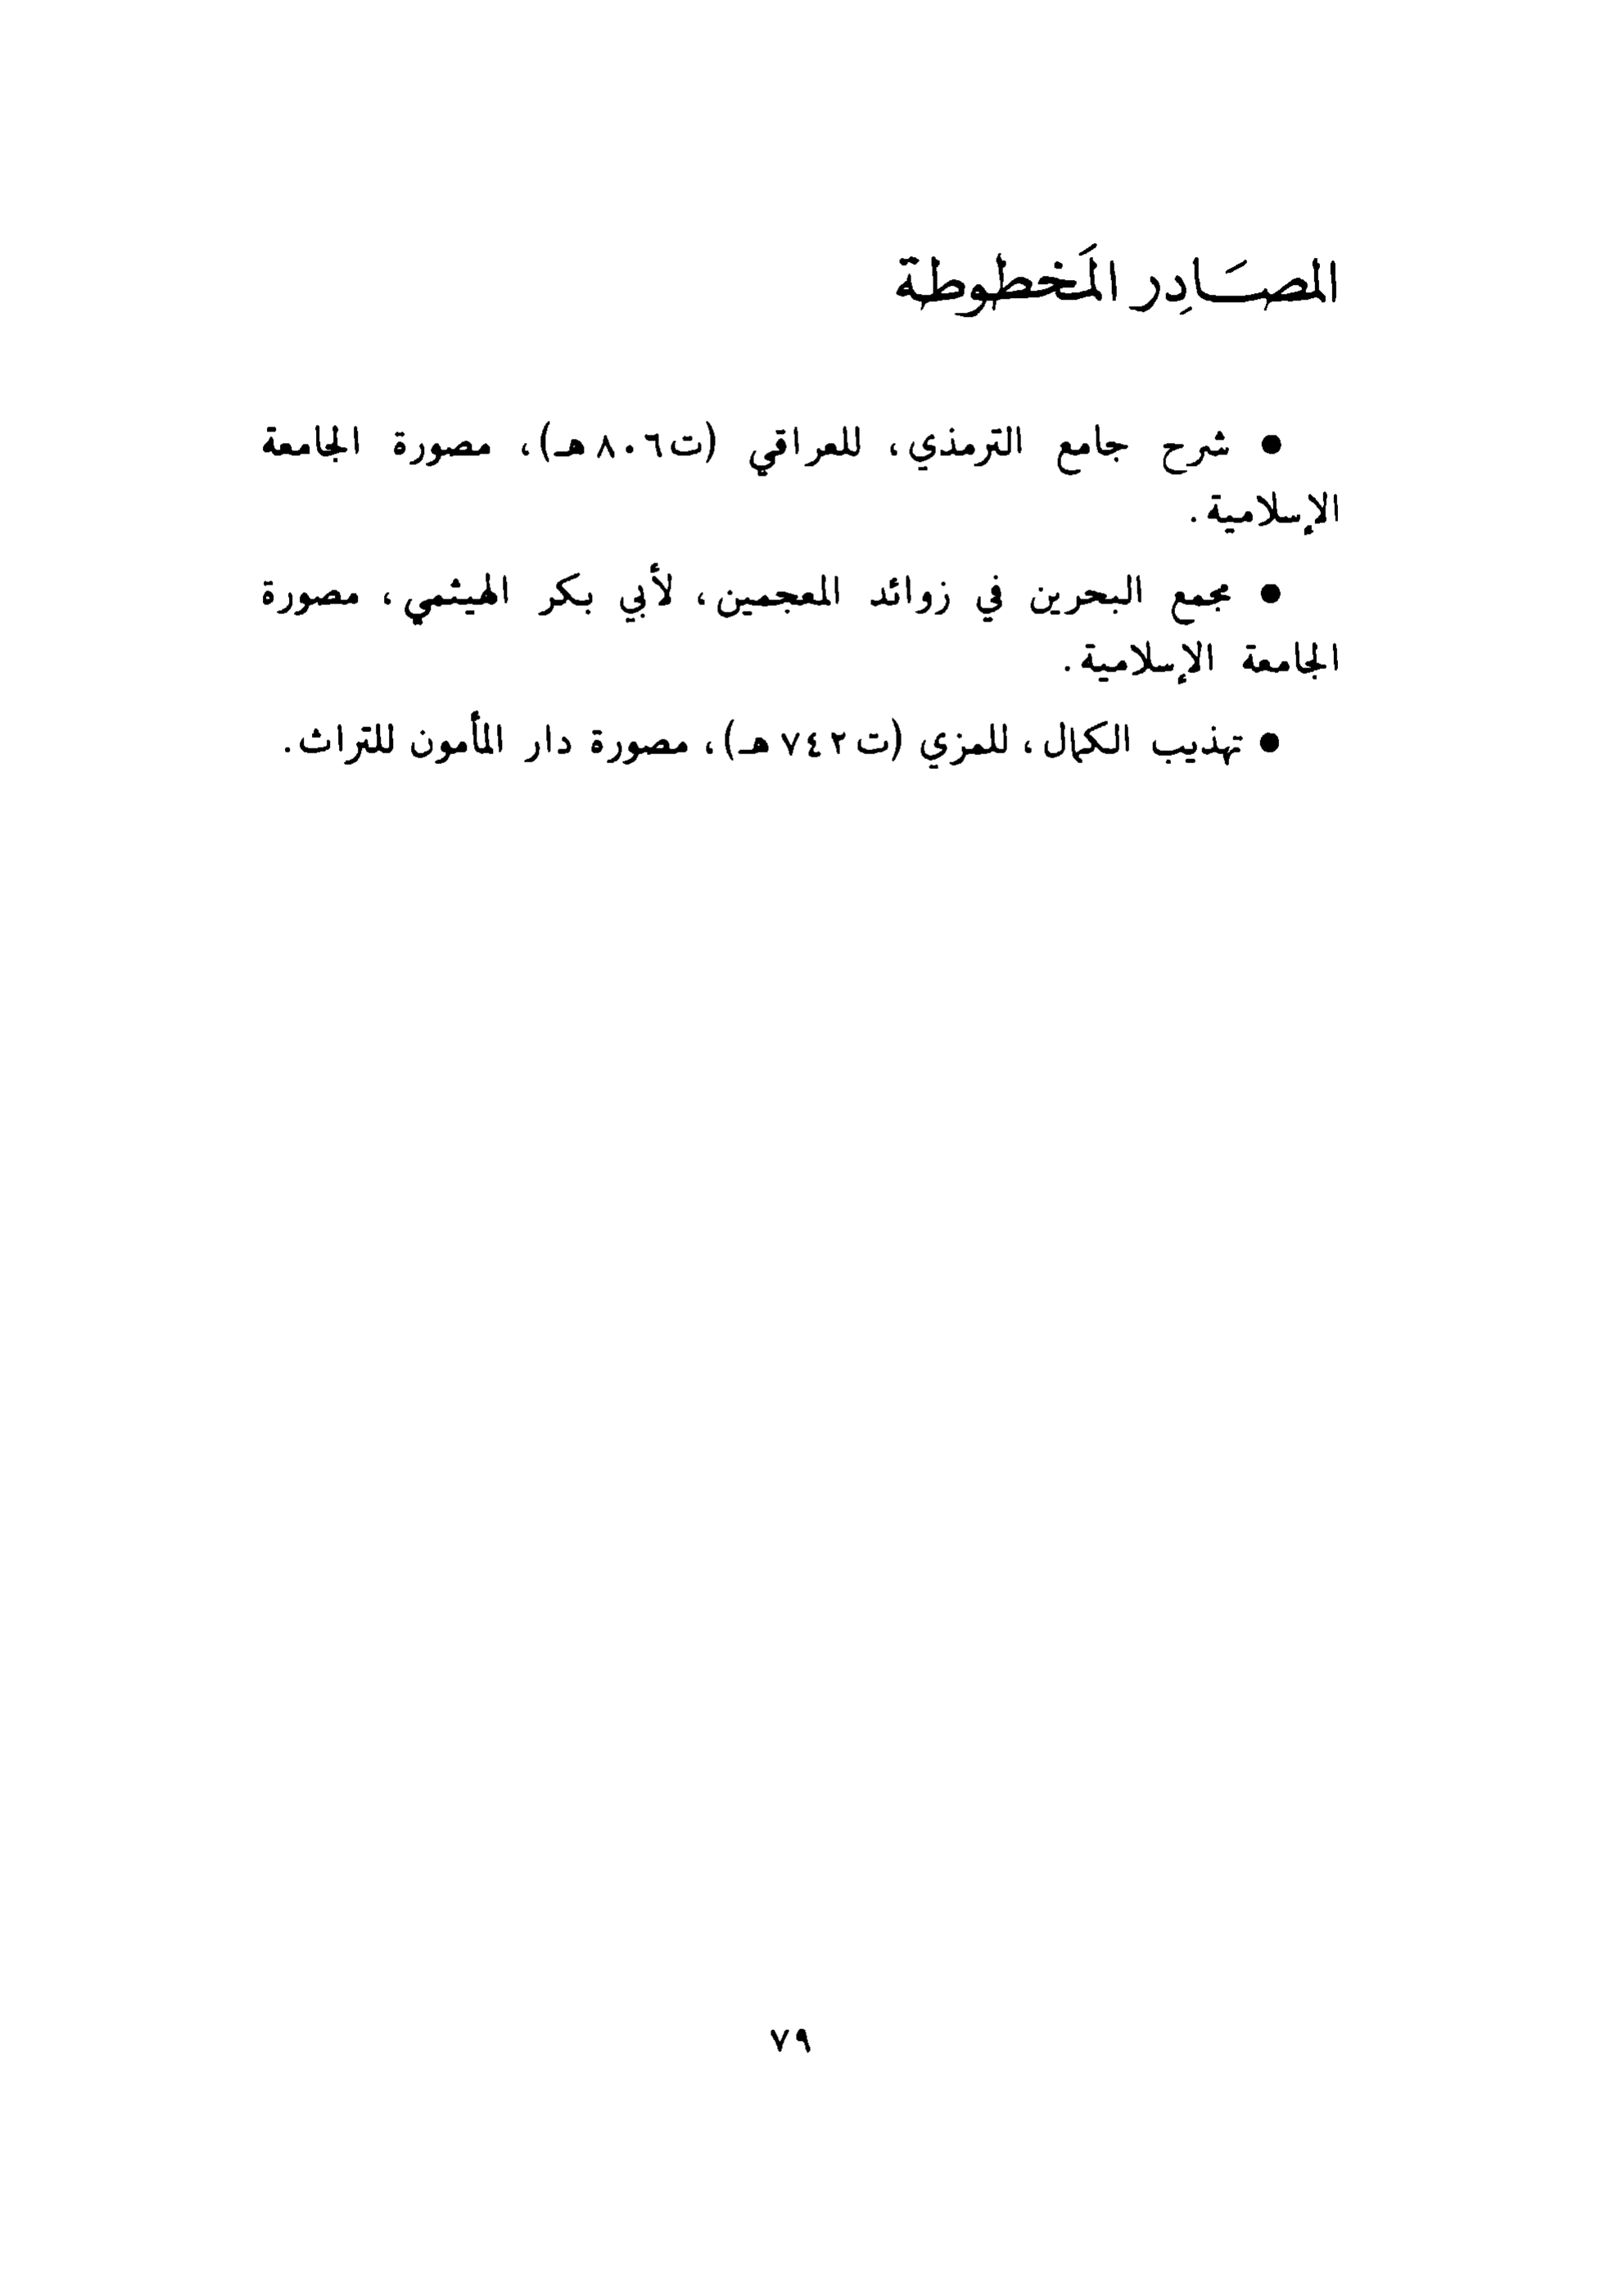 المصَادِر المَخطوطة
● شرح جامع الترمذي، للعراقي (ت٨٠٦هـ)، مصورة الجامعة
الإسلامية.
● مجمع البحرين في زوائد المعجمين، لأبي بكر الهيثمي، مصورة
الجامعة الإسلامية.
● تهذيب الكمال، للمزي (ت٧٤٢هـ)، مصورة دار المأمون للتراث.
٧٩